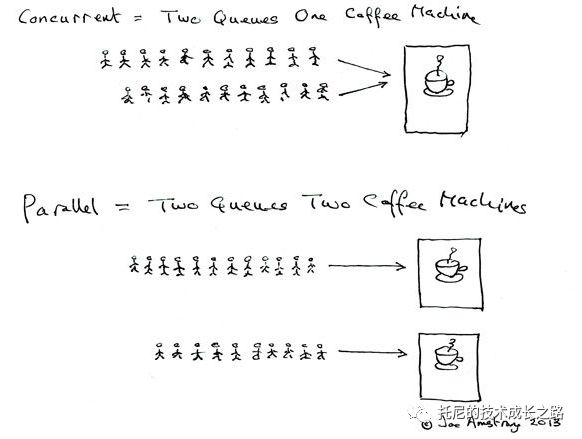 Concurrent = Two Queues One Coffee Machine
Parallel = Two Queues Two Coffee Machines
托尼的技术成长之路
© Joe Armstrong 2013